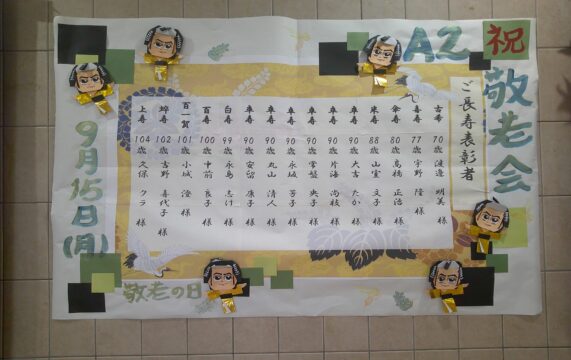 祝
敬老会
A2
ご長寿表彰者
古希 70歳 渡邉 明美 様
喜寿 77歳 野 隆 様
傘寿 80歳 高橋 正治 様
米寿 88歳 山室 文子 様
卒寿 90歳 大吉 たか 様
卒寿 90歳 片海 尚枝 様
卒寿 90歳 常盤 央子 様
卒寿 90歳 永坂 芳子 様
卒寿 90歳 丸山 清人 様
卒寿 90歳 安留 康子 様
白寿 99歳 永島 志げ 様
百寿 100歳 中前 良子 様
百一賀 101歳 小城 澄 様
紳寿 102歳 吉野 喜代子 様
上寿 104歳 久保 クラ 様
9月15日(月)
敬老の日